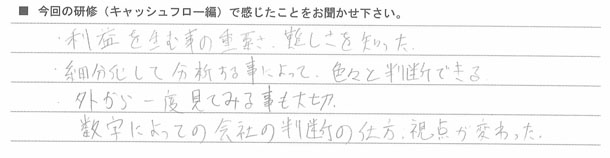 ■ 今回の研修（キャッシュフロー編）で感じたことをお聞かせ下さい。
・利益を生む事の重要さ、難しさを知った。
・細分化して分析する事によって、色々と判断できる。
・外から一度見てみる事も大切。
数字によっての会社の判断の仕方、視点が変わった。